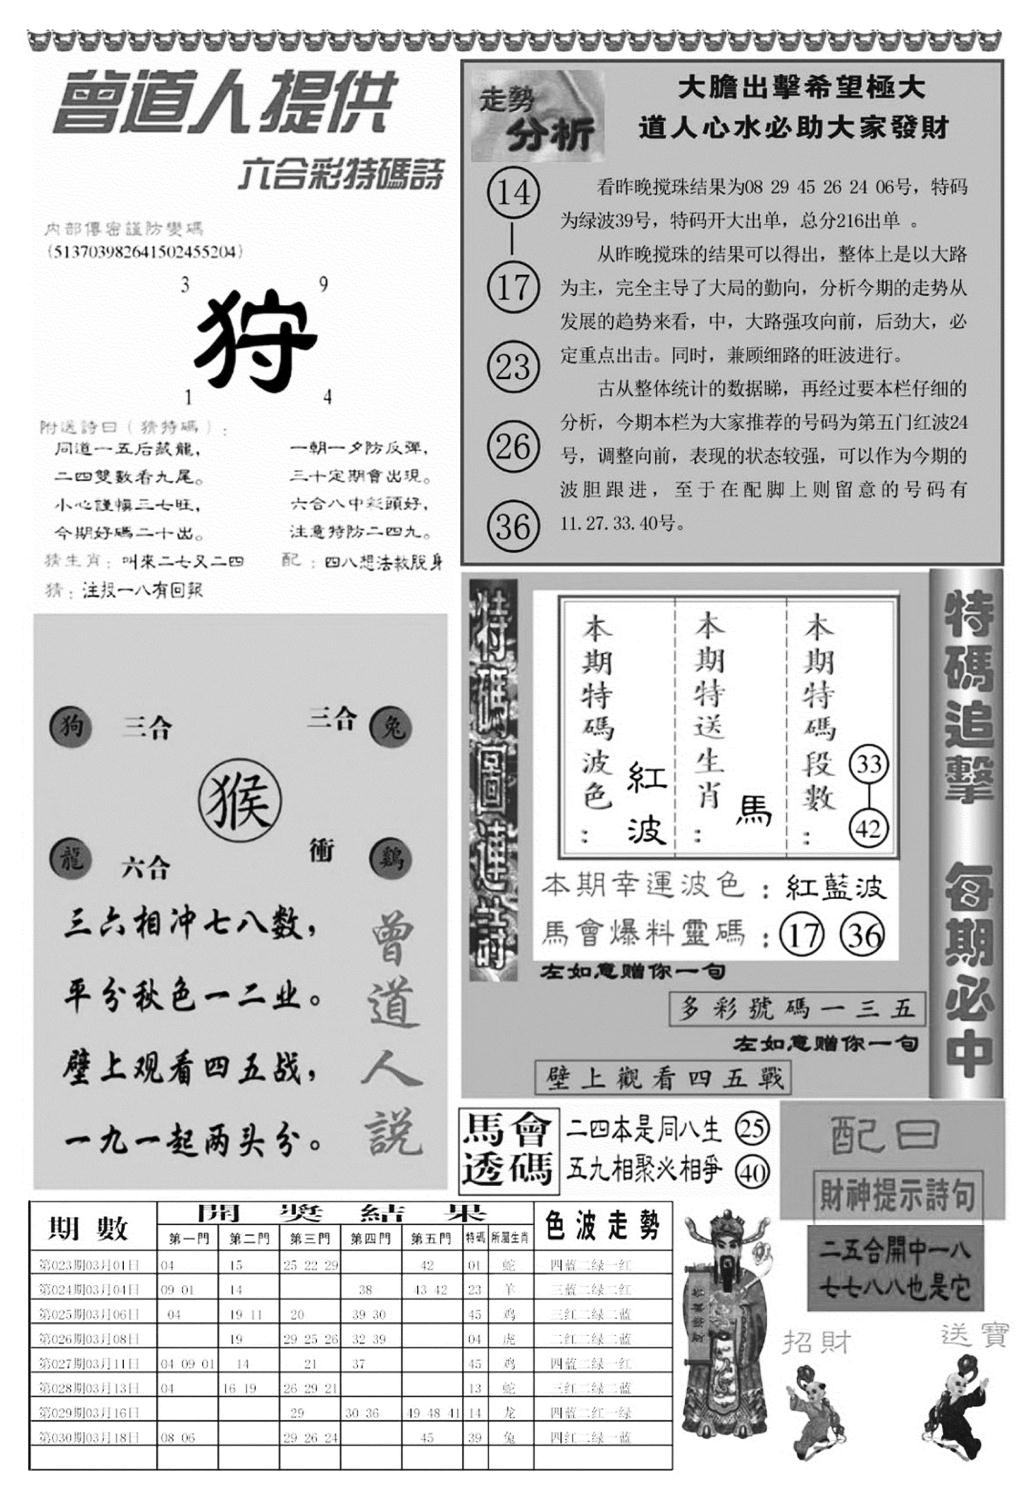 曾道人提供
六合彩特碼詩
内部傳密謹防變碼
(513703982641502455204)
3 9
狩
1 4
附送詩曰(猜特碼):
同道一五后藏龍, 一朝一夕防反彈,
二四雙數看九尾。 三十定期會出現。
小心謹慎三七旺, 六合八中彩頭好,
今期好碼二十出。 注意特防二四九。
猜生肖:叫來二七又二四 配:四八想法救脫身
猜:注投一八有回報
走勢
分析
大膽出擊希望極大
道人心水必助大家發財
14
17
23
26
36
看昨晚搅珠结果为08 29 45 26 24 06号，特码
为绿波39号，特码开大出单，总分216出单 。
从昨晚搅珠的结果可以得出，整体上是以大路
为主，完全主导了大局的勤向，分析今期的走势从
发展的趋势来看，中，大路强攻向前，后劲大，必
定重点出击。同时，兼顾细路的旺波进行。
古从整体统计的数据睇，再经过要本栏仔细的
分析，今期本栏为大家推荐的号码为第五门红波24
号，调整向前，表现的状态较强，可以作为今期的
波胆跟进，至于在配脚上则留意的号码有
11.27.33.40号。
狗 三合 三合 兔
猴
龍 六合 衝 鷄
三六相冲七八数，
平分秋色一二业。
壁上观看四五战，
一九一起两头分。
曾道人説
特碼圖連詩
本期特碼波色：紅波
本期特送生肖：馬
本期特碼段數：33 42
本期幸運波色：紅藍波
馬會爆料靈碼：17 36
左如意赠你一句
多彩號碼一三五
左如意赠你一句
壁上觀看四五戰
特碼追擊 每期必中
馬會透碼
二四本是同八生 25
五九相聚必相爭 40
配曰
財神提示詩句
二五合開中一八
七七八八也是它
招財
送寶
期數 開獎結果 色波走勢
第一門 第二門 第三門 第四門 第五門 特碼 所屬生肖
第023期03月01日 04 15 25 22 29 42 01 蛇 四蓝二绿一红
第024期03月04日 09 01 14 38 43 42 23 羊 三蓝二绿二红
第025期03月06日 04 19 11 20 39 30 45 鸡 三红二绿二蓝
第026期03月08日 19 29 25 26 32 39 04 虎 二红二绿三蓝
第027期03月11日 04 09 01 14 21 37 45 鸡 四蓝二绿一红
第028期03月13日 04 16 19 26 29 21 13 蛇 三红二绿二蓝
第029期03月16日 29 30 36 49 48 41 14 龙 四蓝二红一绿
第030期03月18日 08 06 29 26 24 45 39 兔 四红二绿一蓝